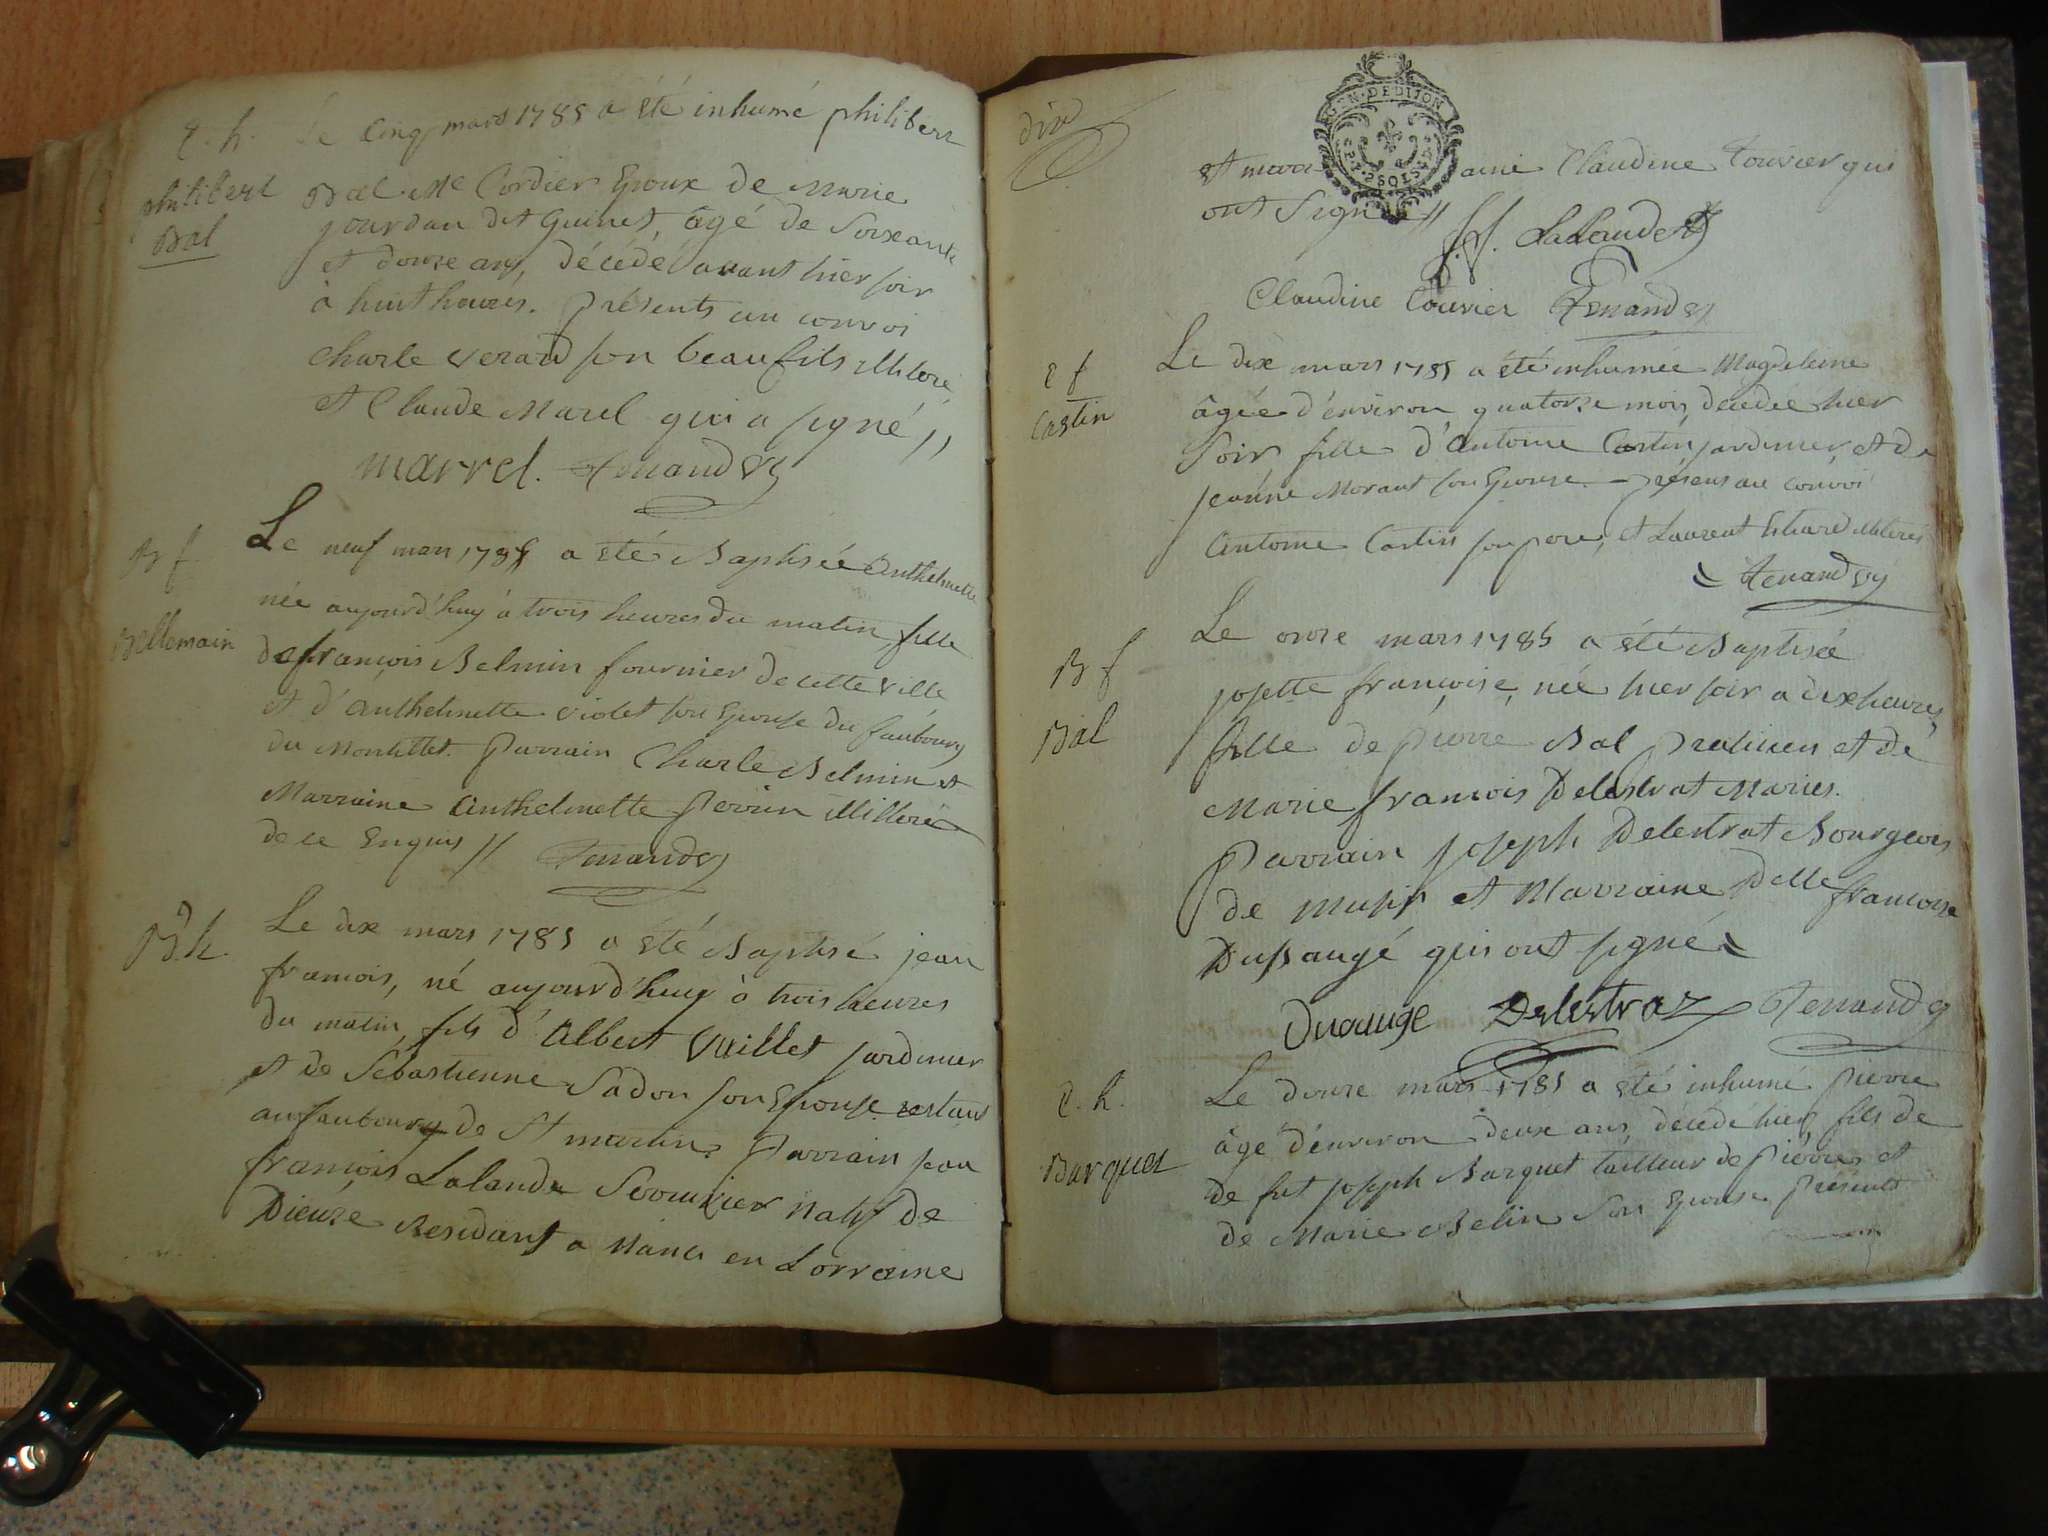 E. h. Le cinq mars 1785 a été inhumé philibert
philibert Bal
Bal Me Cordier Epoux de Marie
jourdan dit Guinet, âgé de Soixante
et douze ans, décédé avant hier soir
à huit heures. Présents au convoi
Charle Verard son beaufils illiteré
et Claude Marel qui a signé //
marrel.
B f
Bellemain
Le neuf mars 1785 a été Baptisée Anthelmette
née aujourd'huy à trois heures du matin, fille
de françois Belmin fournier de cette ville
et d'anthelmette violet son Epouse du faubourg
du Montillet. Parrain Charle Belmin et
Marraine Anthelmette Perrin illiteré
de ce Enquis //
B. h.
Le dix mars 1785 a été Baptisé jean
francois, né aujourd'huy à trois heures
du matin, fils d'Albert Vuillet jardinier
et de Sébastienne Sadon son Epouse restans
au faubourg de St martin. Parrain jean
françois Lalande Serrurier natif de
Dieuze Residant a Nanci en Lorraine
dix
GEN. DE DIJON
et marraine Claudine Touvier qui
ont Signé //
J. f. LaLande
Claudine Touvier
E f
Castin
Le dix mars 1785 a été inhumée Magdeleine
âgée d'environ quatorze mois, décédée hier
Soir, fille d'antoine Castin jardinier, et de
jeanne Morant son Epouse. présens au convoi
Antoine Castin son pere, et Laurent illiterés
B f
Bal
Le onze mars 1785 a été Baptisée
josette françoise, née hier soir a dix heures,
fille de pierre Bal praticien et de
Marie francois Delestrat Mariés.
Parrain joseph Delestrat Bourgeois
de et Marraine Delle francoise
Dussaugé qui ont signé
Delestraz
E. h.
Barquet
Le douze mars 1785 a été inhumé pierre
âgé d'environ deux ans, décédé hier, fils de
de fut joseph Barquet tailleur de pierres et
de Marie Belin son Epouse. présents